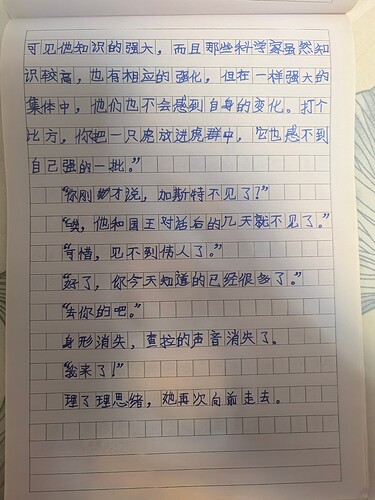 可见他知识的强大，而且那些科学家虽然知
识较高，也有相应的强化，但在一样强大的
集体中，他们也不会感到自身的变化。打个
比方，你把一只虎放进虎群中，它也感不到
自己强的一批。”
“你刚才说，加斯特不见了？”
“嗯，他和国王对话后的几天就不见了。”
“可惜，见不到伟人了。”
“好了，你今天知道的已经很多了。”
“去你的吧。”
身形消失，查拉的声音消失了。
“我来了！”
理了理思绪，她再次向前走去。